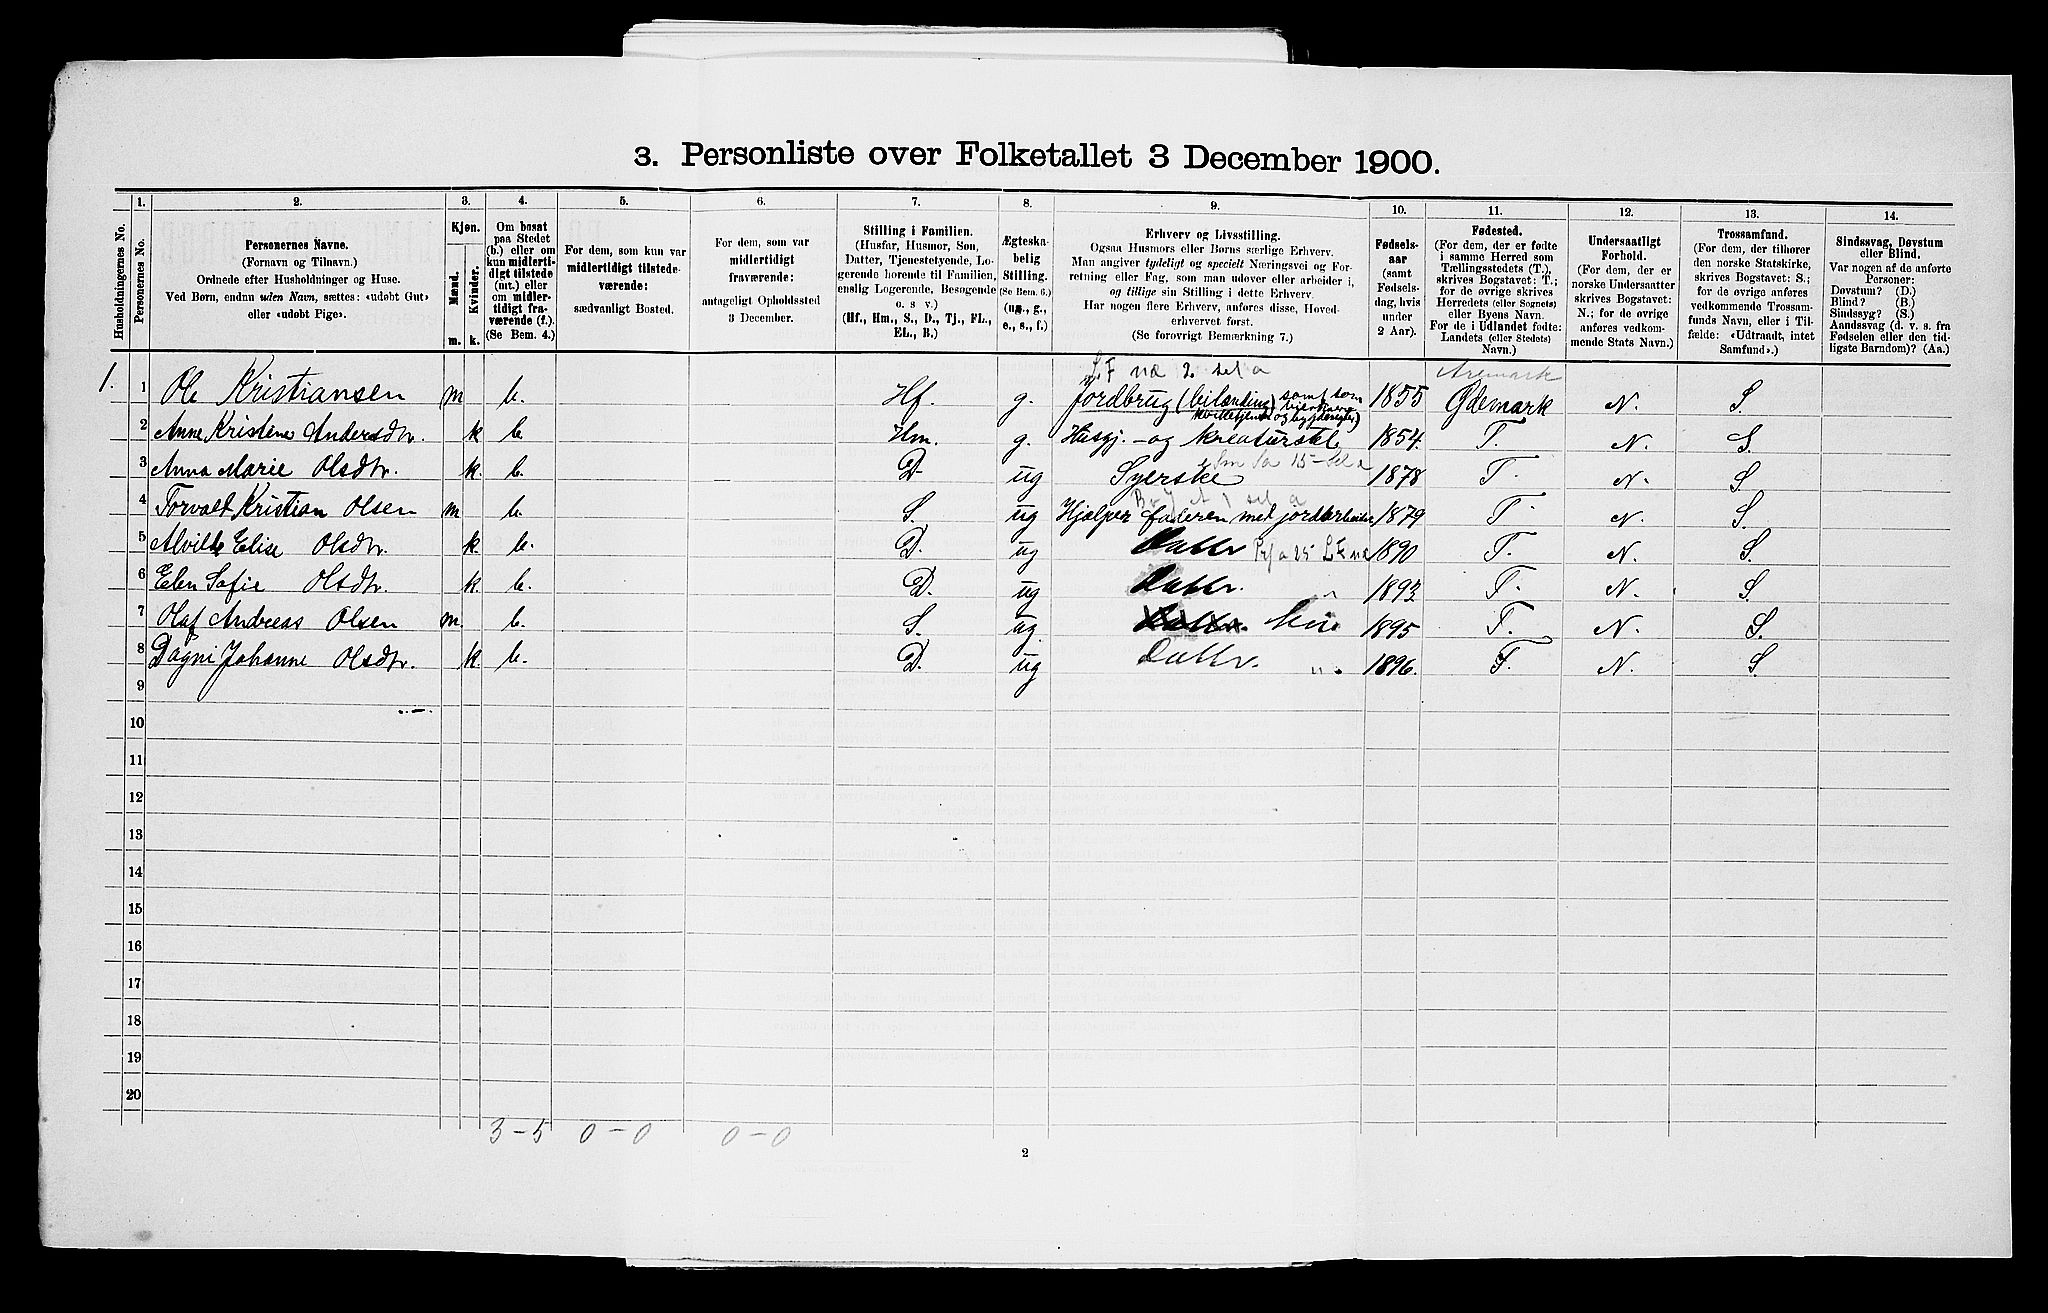 3. Personliste over Folketallet 3 December 1900.
1. 2. 3. 4. 5. 6. 7. 8. 9. 10. 11. 12. 13. 14.
Husholdningernes No.
Personernes No.
Personernes Navne.
(Fornavn og Tilnavn.)
Ordnede efter Husholdninger og Huse.
Ved Børn, endnu uden Navn, sættes: «udøbt Gut»
eller «udøbt Pige».
Kjøn.
Mænd.
Kvinder.
m. k.
Om bosat
paa Stedet
(b.) eller om
kun midler-
tidigt tilstede
(mt.) eller
om midler-
tidigt fra-
værende (f.).
(Se Bem. 4.)
For dem, som kun var
midlertidigt tilstede-
værende:
sædvanligt Bosted.
For dem, som var
midlertidigt
fraværende:
antageligt Opholdssted
3 December.
Stilling i Familien.
(Husfar, Husmor, Søn,
Datter, Tjenestetyende, Lo-
gerende hørende til Familien,
enslig Logerende, Besøgende
o. s. v.)
(Hf., Hm., S., D., Tj., FL.,
EL., B.)
Ægteska-
belig
Stilling.
(Se Bem. 6.)
(ug., g.,
e., s., f.)
Erhverv og Livsstilling.
Ogsaa Husmors eller Børns særlige Erhverv.
Man angiver tydeligt og specielt Næringsvei og For-
retning eller Fag, som man udøver eller arbeider i,
og tillige sin Stilling i dette Erhverv.
Har nogen flere Erhverv, anføres disse, Hoved-
erhvervet først.
(Se forøvrigt Bemærkning 7.)
Fødsels-
aar
(samt
Fødsels-
dag, hvis
under
2 Aar).
Fødested.
(For dem, der er fødte
i samme Herred som
Tællingsstedets (T.),
skrives Bogstavet: T.;
for de øvrige skrives
Herredets (eller Sognets)
eller Byens Navn.
For de i Udlandet fødte:
Landets (eller Stedets)
Navn.)
Undersaatligt
Forhold.
(For dem, der er
norske Undersaatter
skrives Bogstavet:
N.; for de øvrige
anføres vedkom-
mende Stats Navn.)
Trossamfund.
(For dem, der tilhører
den norske Statskirke,
skrives Bogstavet: S.;
for de øvrige anføres
vedkommende Trossam-
funds Navn, eller i Til-
fælde: «Udtraadt, intet
Samfund».)
Sindssvag, Døvstum
eller Blind.
Var nogen af de anførte
Personer:
Døvstum? (D.)
Blind? (B.)
Sindssyg? (S.)
Aandssvag (d. v. s. fra
Fødselen eller den tid-
ligste Barndom)? (Aa.)
L.F næ 2 sel a
Aremark
1. 1 Ole Kristiansen m b. Hf. g. Jordbrug (leilænding) samt som 1855 Ødemark N. S.
2 Anne Kristine Andersdtr. k b. Hm. g. Husgj. og kreaturstel 1854. T. N. S.
3 Anna Marie Olsdtr. k. b. D. ug Syerske 1878 T. N. S.
4 Torvalt Kristian Olsen m b. S. ug Hjælper faderen med jordarbeider 1879 T. N. S.
5 Alvilde Elise Olsdtr. k. b. D. ug Datter 1890 T. N. S.
6 Elen Sofie Olsdtr. k. b. D. ug Datter. „ 1893. T. N. S.
7 Olaf Andreas Olsen m. b. S. ug. 1895 T. N. S.
8 Dagni Johanne Olsdtr. k. b. D. ug Datter. „ 1896. T. N. S.
9
10
11
12
13
14
15
16
17
18
19
20
3 – 5 0 – 0 0 – 0
2